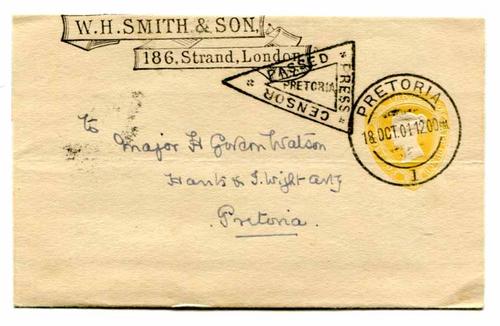 W.H. SMITH & SON,
186, Strand, London
PASSED PRESS CENSOR
PRETORIA
PRETORIA
18 OCT. 01 12 00
1
To
Major H Gordon Watson
Hants & I. Wight Arty
Pretoria